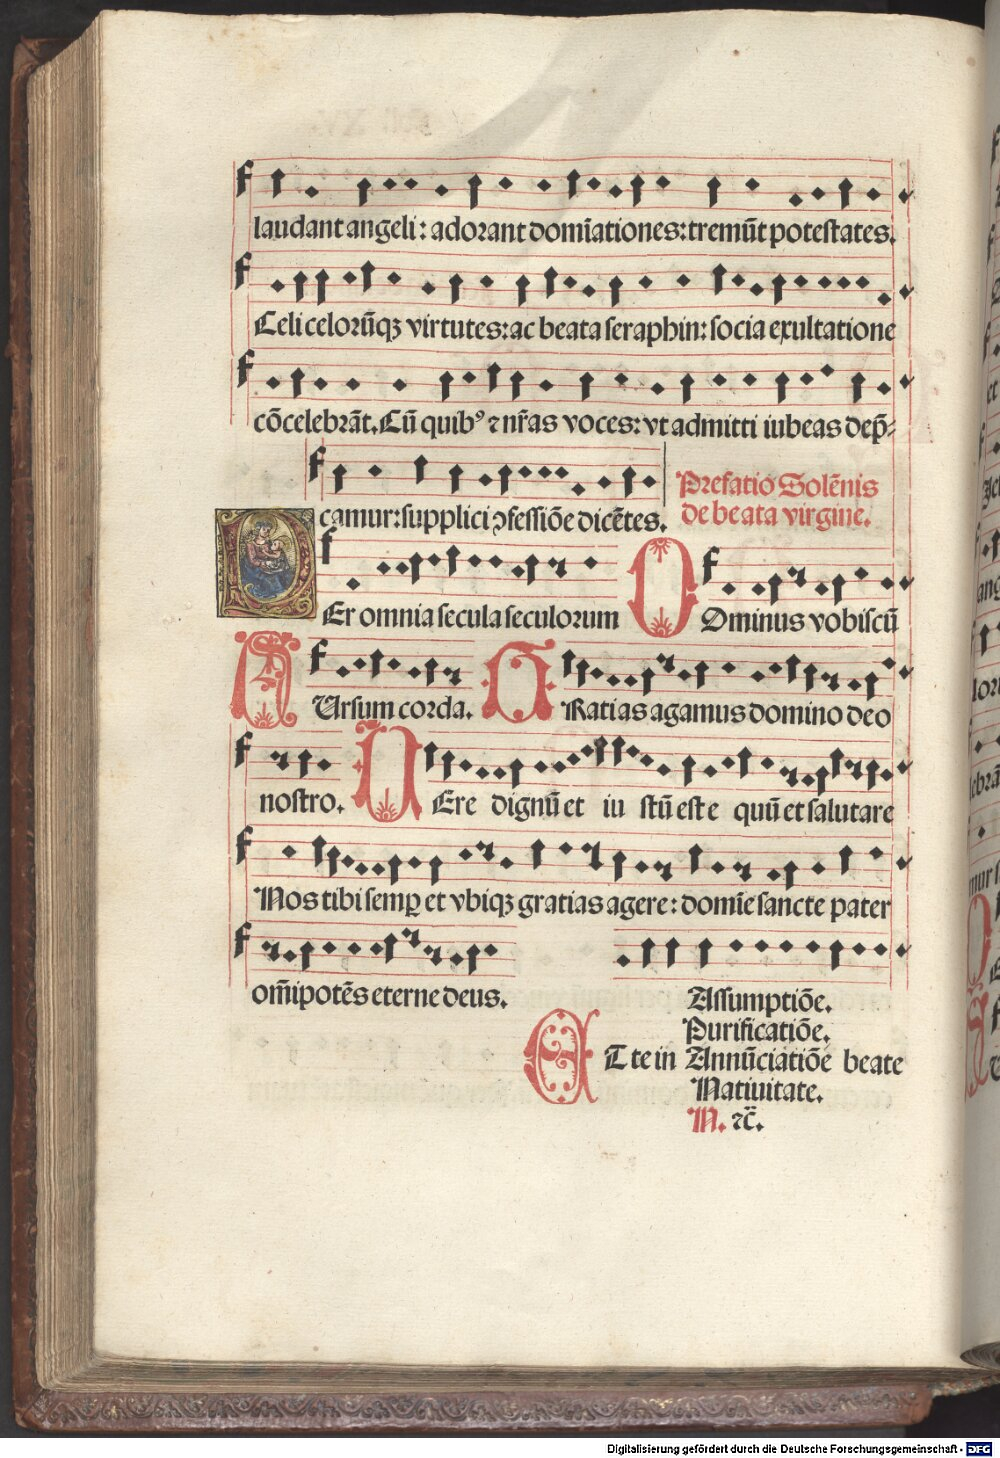 laudant angeli: adorant domīationes: tremūt potestates.
Celi celorūqȝ virtutes: ac beata seraphin: socia exultatione
cōcelebrāt. Cū quibꝰ ⁊ nr̄as voces: vt admitti iubeas dep̄⸗
camur: supplici ꝯfessiōe dicētes.
Prefatio Solēnis
de beata virgine.
PEr omnia secula seculorum DOminus vobiscū
SUrsum corda. GRatias agamus domino deo
nostro. VEre dignū et iustū est equū et salutare
Nos tibi semꝑ et vbiqȝ gratias agere: domīe sancte pater
om̄ipotēs eterne deus.
Assumptiōe.
Purificatiōe.
ET te in Annūciatiōe beate
Natiuitate.
M. ⁊c̄.
Digitalisierung gefördert durch die Deutsche Forschungsgemeinschaft - DFG